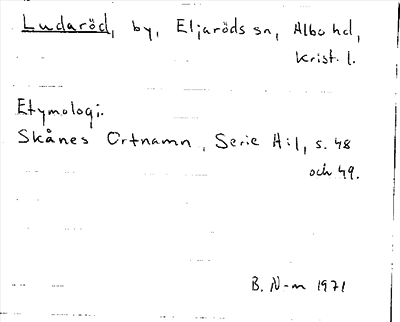 Ludaröd, by, Eljaröds sn, Albo hd,
Krist. l.
Etymologi.
Skånes Ortnamn, Serie A:1, s. 48
och 49.
B. N-m 1971